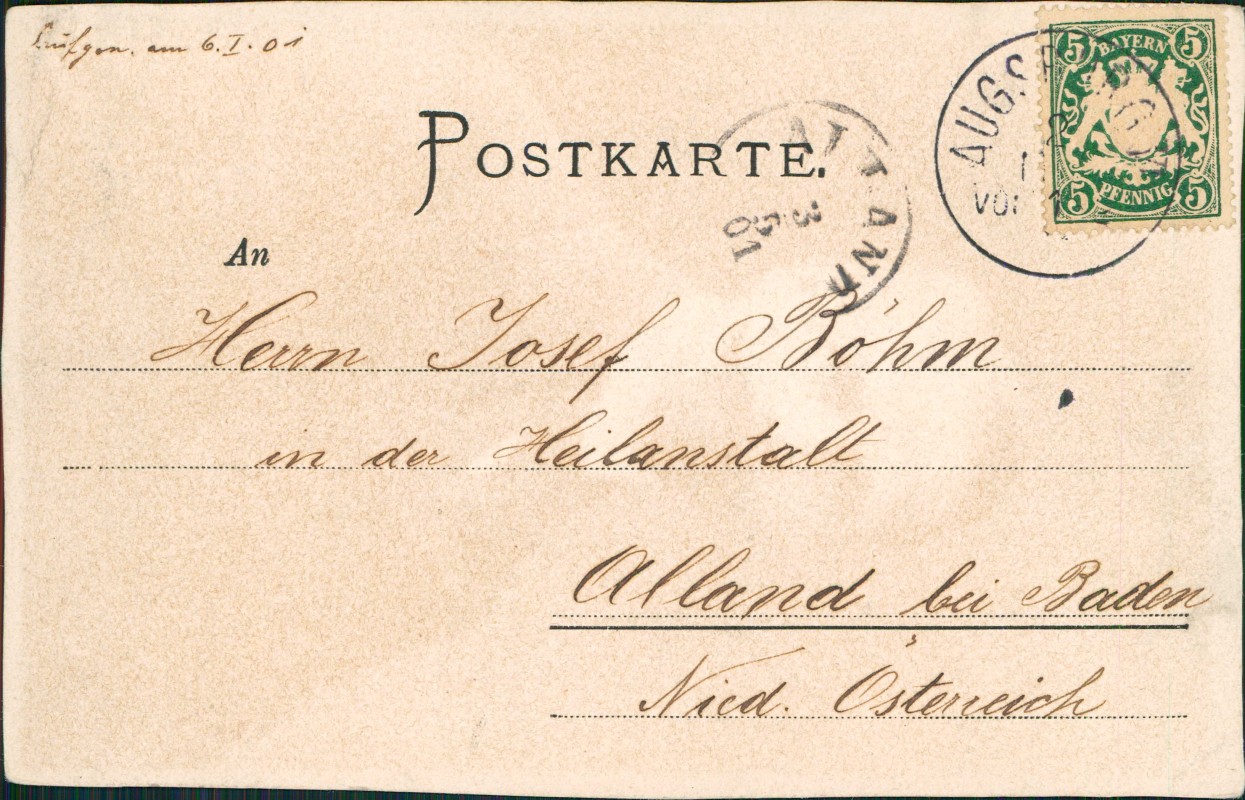 am 6.I.01
5 BAYERN 5
5 PFENNIG 5
AUGSBURG
2
VOR 1
ALLAND
3
01
POSTKARTE.
An
Herrn Josef Böhm
in der Heilanstalt
Alland bei Baden
Nied. Österreich